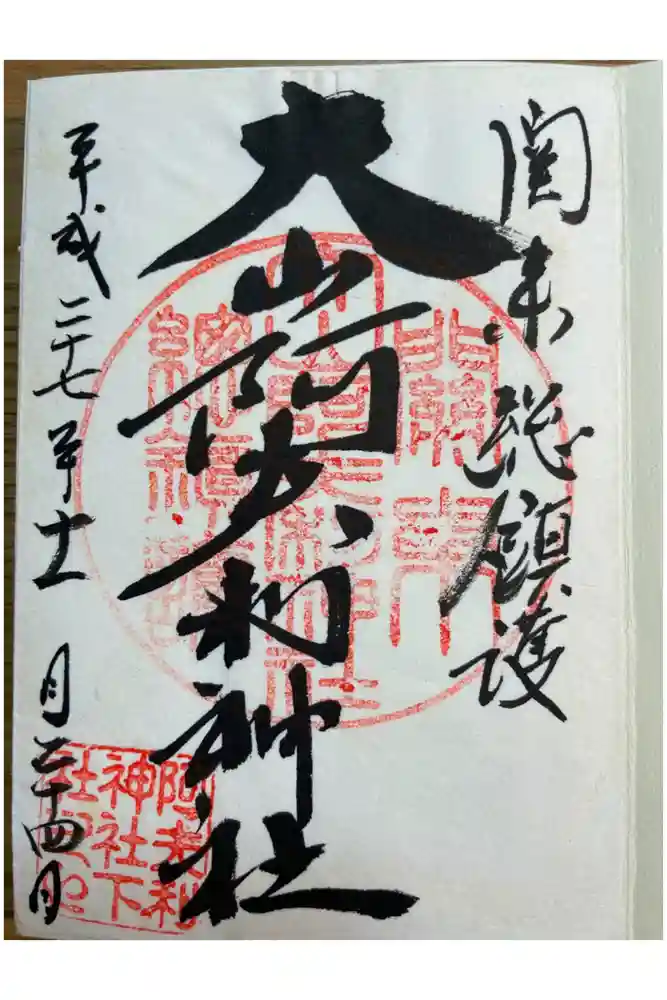 関東総鎮護
大山阿夫利神社
平成二十七年十一月二十四日
阿夫利
神社下
社